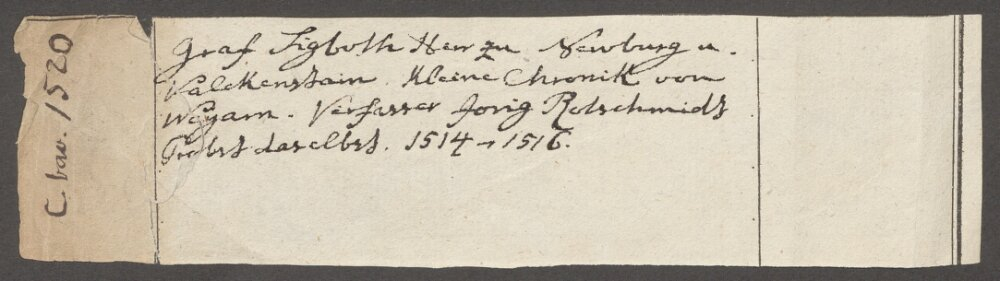 C. bav. 1520
Graf Sigboth Herr zu Newburg u.
Valckenstain. Kleine Chronik von
Weyarn. Verfasser Jorig Rotschmidt
Probst daselbst. 1514 – 1516.